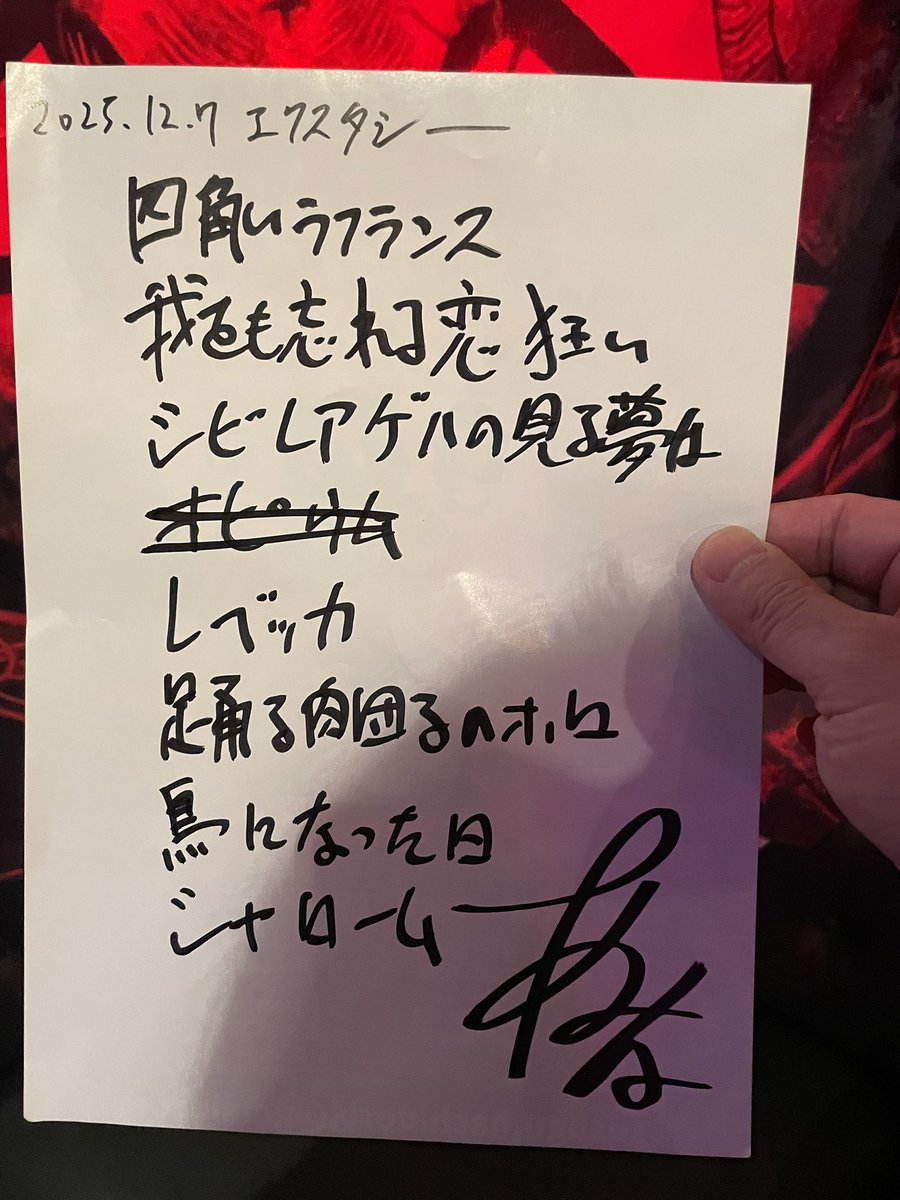 2025.12.7 エクスタシー
四角いラフランス
我をも忘れる恋狂い
シビレアゲハの見る夢は
オピウム
レベッカ
踊る肉団子のオルロ
鳥になった日
シャローム